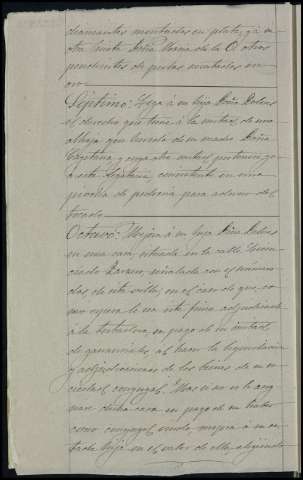 diamantes montados en plata, y á su
otra nieta Doña María de la O. otros
pendientes de perlas montados en
oro
Séptimo: Lega á su hija Doña Dolores
el derecho que tiene á la mitad de una
alhaja que heredó de su madre Doña
y cuya otra mitad pertenece ya
á esta consistente en una
piocha de pedrería para adorno de
tocado
Octavo: Mejora á su hija Doña Dolores
en una casa situada en la calle
señalada con el número
dos, de esta villa, en el caso de que, co-
mo espera le sea esta finca adjudicada
á la testadora, en pago de su mitad
de gananciales, al hacer la liquidación
y adjudicaciones de los bienes de su so-
ciedad conyugal. Mas si no se le asig-
nase dicha casa en pago de su haber
como conyuge viudo, mejora á su ci-
tada hija en el valor de ella,